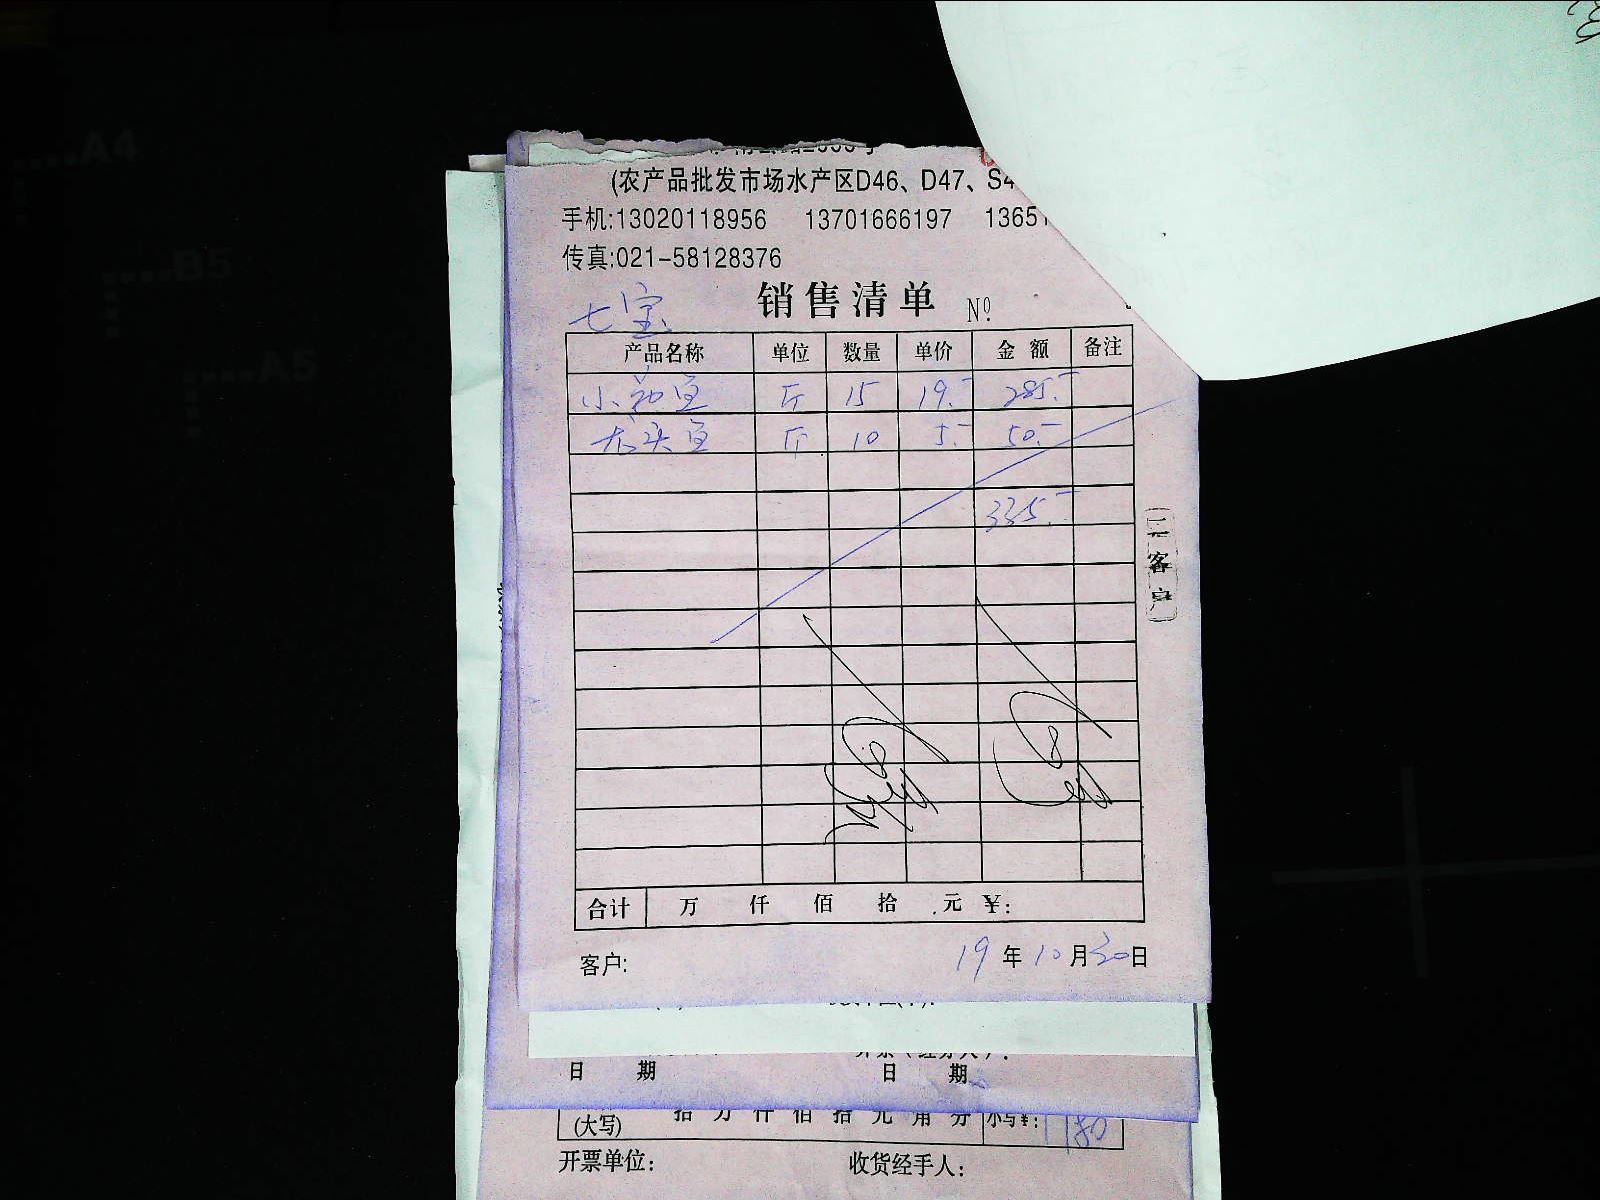 (农产品批发市场水产区D46、D47、S4
手机:13020118956 13701666197 1365
传真:021-58128376
七宝 销售清单 Nº
产品名称 单位 数量 单价 金额 备注
小黄鱼 斤 15 19.- 285.-
龙头鱼 斤 10 5.- 50.-
335.-
客户
合计 万 仟 佰 拾 元 ¥:
客户: 19年10月30日
日 期 日 期
(大写) 拾 万 仟 佰 拾 元 角 分 小写¥: 180
开票单位: 收货经手人:
A4
B5
A5